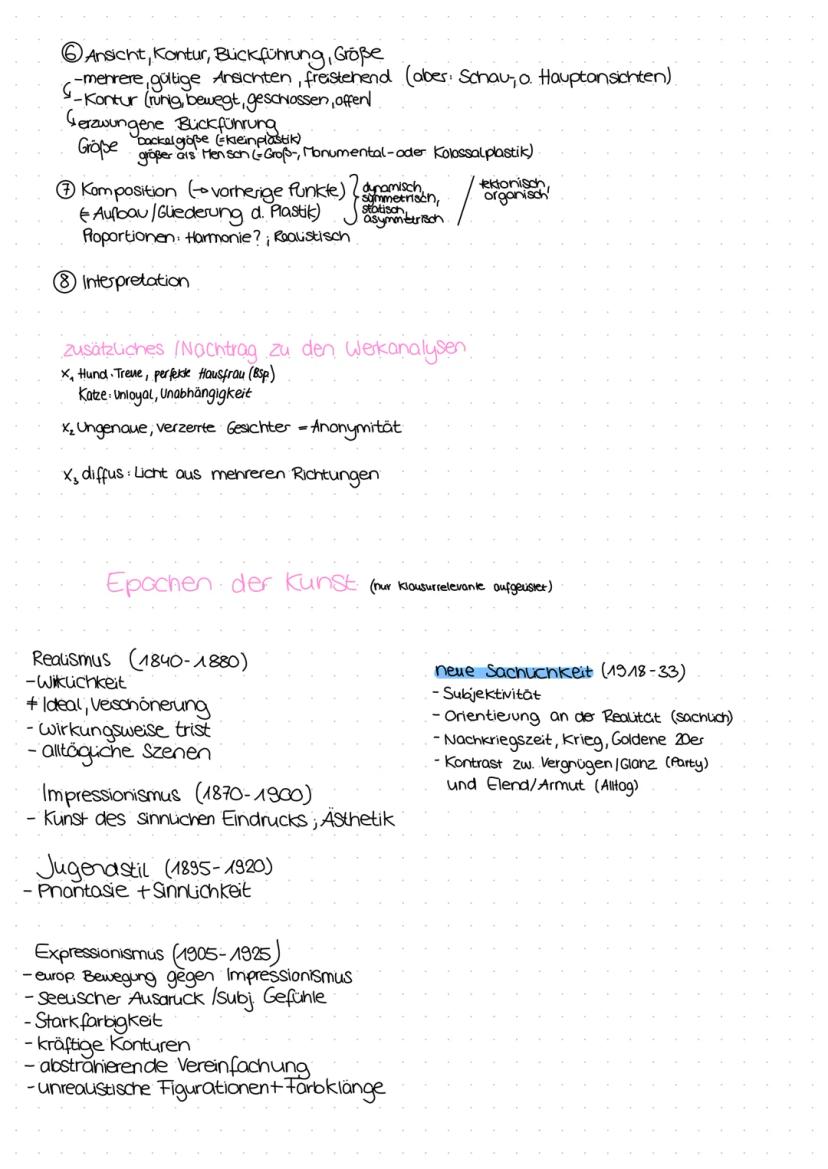 ⑥ Ansicht, Kontur, Blickführung, Größe
-mehrere, gültige Ansichten, freistehend (aber: Schau-, o. Hauptansichten)
-Kontur (ruhig, bewegt, geschlossen, offen)
erzwungene Blickführung
Größe dackelgröße (=Kleinplastik)
größer als Mensch (=Groß-, Monumental- oder Kolossalplastik)
⑦ Komposition (→ vorherige Punkte) } dynamisch, symmetrisch, statisch, asymmetrisch / tektonisch, organisch
(= Aufbau/Gliederung d. Plastik)
Proportionen: Harmonie?; Realistisch
⑧ Interpretation
zusätzliches /Nachtrag zu den Werkanalysen
x₁ Hund: Treue, perfekte Hausfrau (Bsp)
Katze: Unloyal, Unabhängigkeit
x₂ Ungenaue, verzerrte Gesichter = Anonymität
x₃ diffus: Licht aus mehreren Richtungen
Epochen der Kunst (nur klausurrelevante aufgelistet)
Realismus (1840-1880)
-Wirklichkeit
≠ Ideal, Verschönerung
- wirkungsweise trist
- alltägliche Szenen
Impressionismus (1870-1900)
- Kunst des sinnlichen Eindrucks; Ästhetik
Jugendstil (1895-1920)
- Phantasie + Sinnlichkeit
Expressionismus (1905-1925)
-europ. Bewegung gegen Impressionismus
- seelischer Ausdruck /subj. Gefühle
- Starkfarbigkeit
- kräftige Konturen
- abstrahierende Vereinfachung
-unrealistische Figurationen + Farbklänge
neue Sachlichkeit (1918-33)
- Subjektivität
- Orientierung an der Realität (sachlich)
- Nachkriegszeit, Krieg, Goldene 20er
- Kontrast zw. Vergnügen/Glanz (Party)
und Elend/Armut (Alltag)